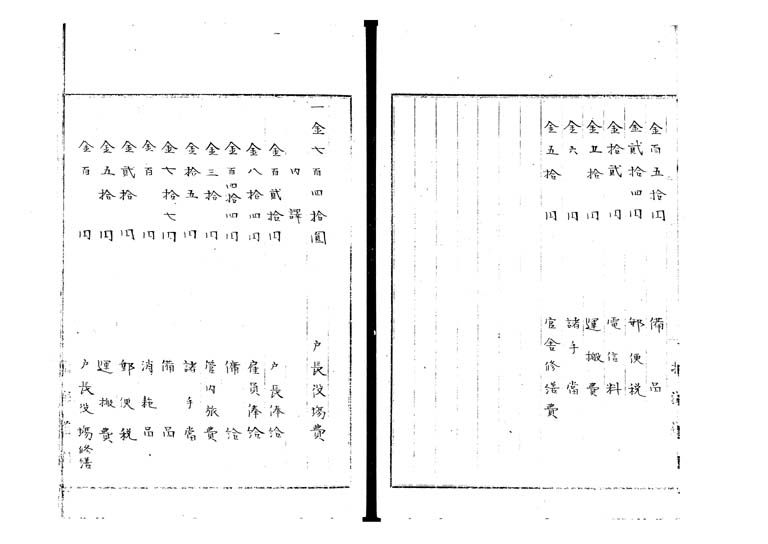 金百五拾円 備品
金貳拾四円 郵便税
金拾貳円 電信料
金五拾円 運搬費
金六円 諸手當
金五拾円 官舎修繕費
一金七百四拾圓 戸長役場費
内譯
金百貳拾円 戸長俸給
金八拾四円 雇員俸給
金百四拾四円 傭給
金三拾円 管内旅費
金拾五円 諸手當
金七拾七円 備品
金百円 消耗品
金貳拾円 郵便税
金五拾円 運搬費
金百円 戸長役場修繕